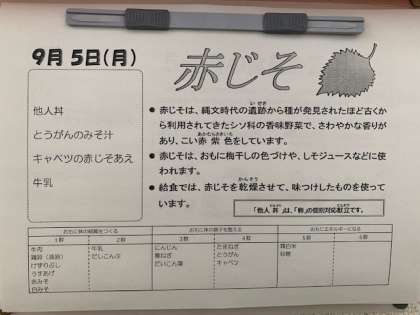 9月 5日(月)
赤じそ
他人丼
とうがんのみそ汁
キャベツの赤じそあえ
牛乳
● 赤じそは、縄文時代の遺跡から種が発見されたほど古くか
いせき
ら利用されてきたシソ科の香味野菜で、さわやかな香りが
あかむらさきいろ
あり、こい赤紫色をしています。
● 赤じそは、おもに梅干しの色づけや、しそジュースなどに使
われます。
かんそう
● 給食では、赤じそを乾燥させて、味つけしたものを使って
います。
「他人丼」は、「卵」の個別対応献立です。
おもに体の組織をつくる おもに体の調子を整える おもにエネルギーになる
1群 2群 3群 4群 5群 6群
牛肉 牛乳 にんじん たまねぎ 精白米
鶏卵(液卵) だいこんぶ 葉ねぎ とうがん 砂糖
けずりぶし だいこん葉 キャベツ
うすあげ
赤みそ
白みそ